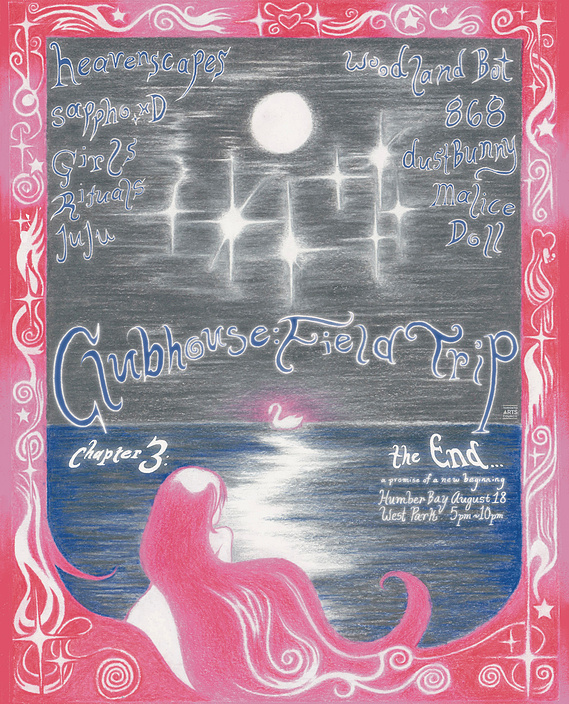 heavenscapes
sapphoxxD
Girls
Rituals
JuJu
Woodland Bot
868
dustBunny
Malice
Doll
Clubhouse: Field Trip
ARTS
Chapter 3:
the End...
a promise of a new beginning
Humber Bay August 18
West Park 5pm~10pm